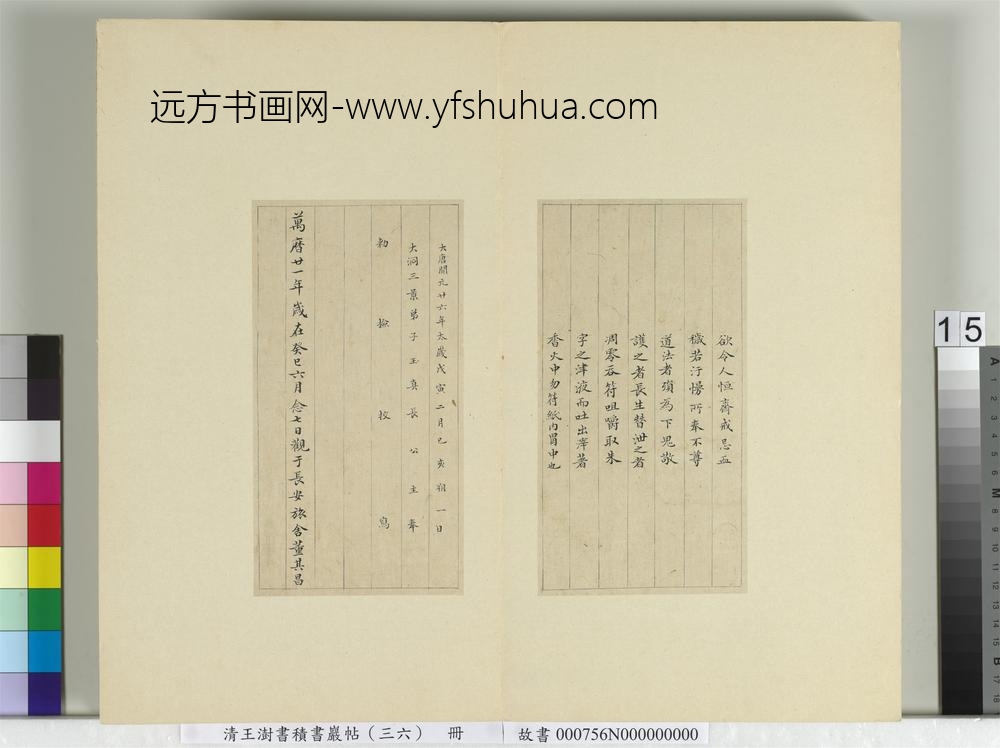 远方书画网-www.yfshuhua.com
欲令人恒齋戒忌血
穢若汙慢所奉不尊
道法者殞為下鬼敬
護之者長生替泄之者
凋零吞符咀嚼取朱
字之津液而吐出滓著
香火中勿符紙內胃中也
大唐開元廿六年太歲戊寅二月己亥朔一日
大洞三景弟子玉真長公主奉
勅撿校寫
萬曆廿一年歲在癸巳六月念七日觀于長安旅舍董其昌
15
清王澍書積書巖帖（三六） 冊
故書 000756N000000000